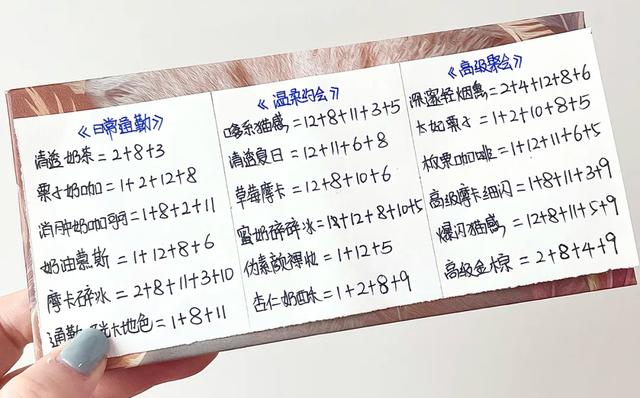 《日常通勤》
清透奶茶=2+8+3
栗子奶咖=1+2+12+8
消肿奶咖=1+8+2+11
奶油慕斯=1+12+8+6
摩卡碎冰=2+8+11+3+10
通勤 卡地色=1+8+11
《温柔约会》
猫感=12+8+11+3+5
清透夏日=12+11+6+8
草莓摩卡=12+8+10+6
蜜奶碎碎冰=12+8+10+5
伪素颜裸妆=1+12+5
杏仁奶=1+2+8+9
《高级聚会》
深邃轻烟熏=2+4+12+8+6
栗子=1+2+10+8+5
板栗咖啡=1+12+11+6+5
高级摩卡细闪=1+8+11+3+9
爆闪猫感=12+8+11+5+9
高级金棕=2+8+4+9